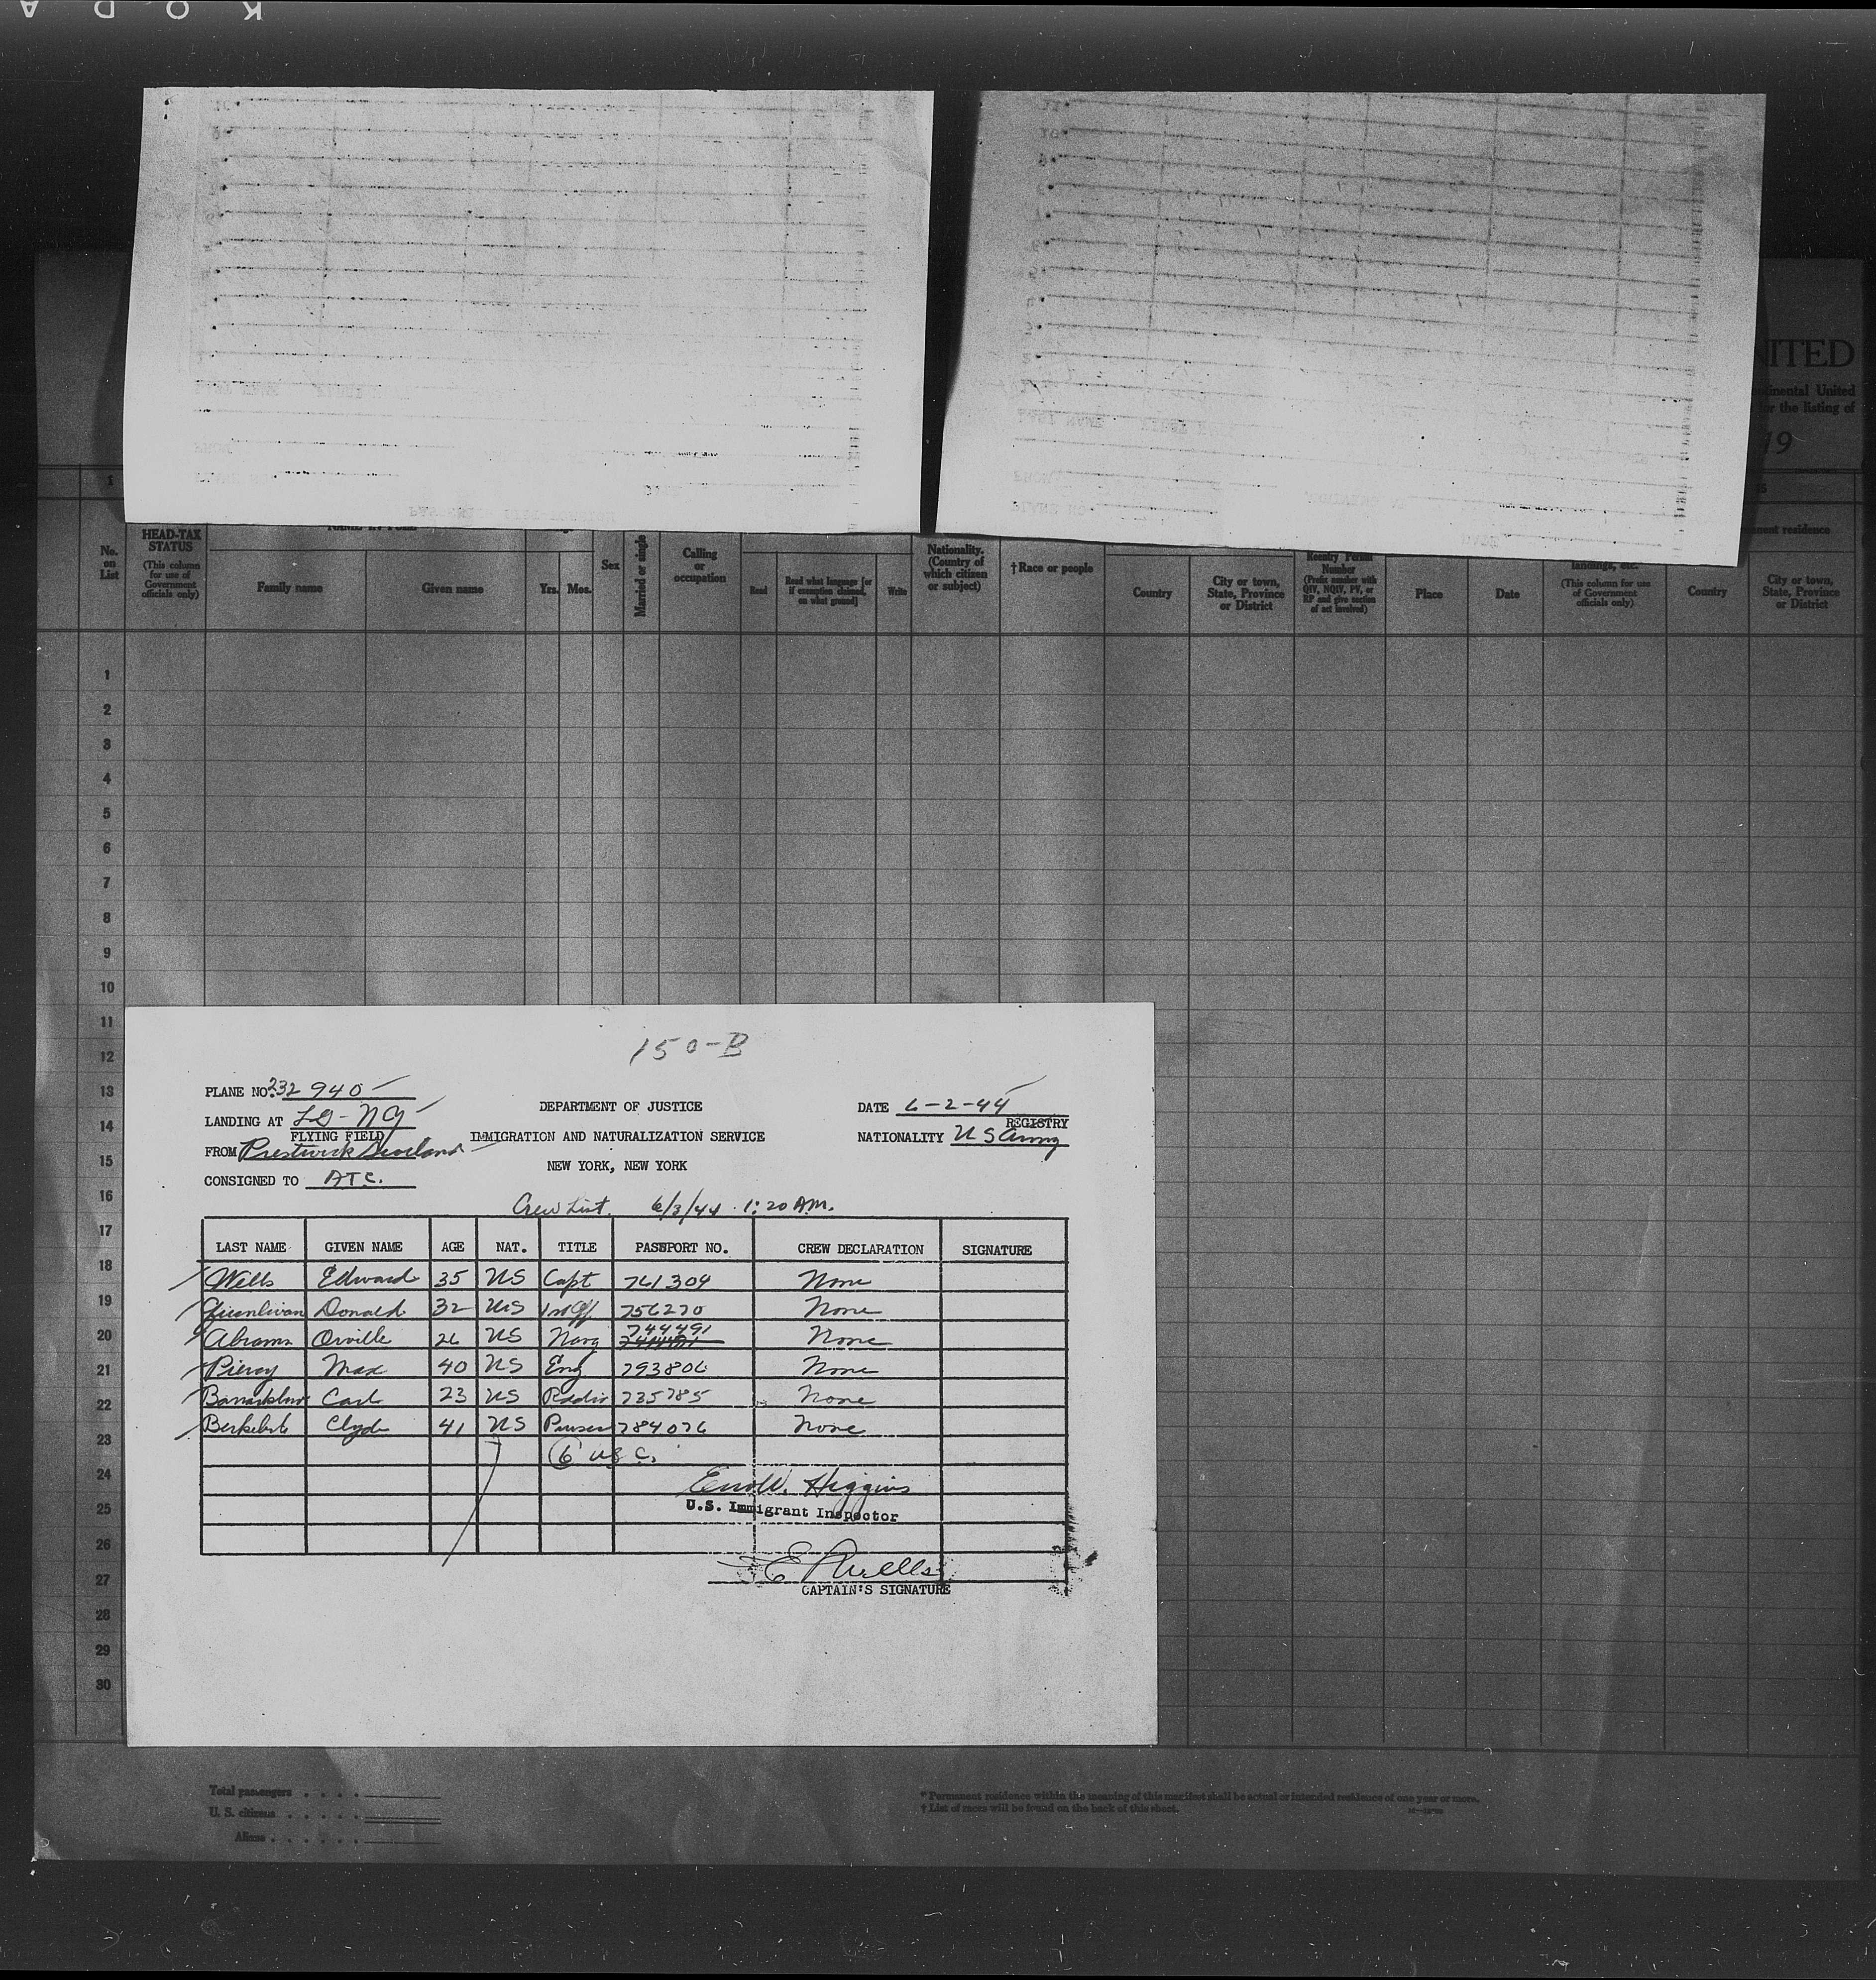 K O D A
UNITED
Continental United
for the listing of
19
HEAD-TAX STATUS
(This column for use of Government officials only)
No. on List
Family name
Given name
Yrs.
Mos.
Sex
Married or single
Calling or occupation
Read
Read what language [or if exemption claimed, on what ground]
Write
Nationality. (Country of which citizen or subject)
†Race or people
Country
City or town, State, Province or District
Reentry Permit Number
(Prefix number with QIV, NQIV, PV, or RP and give section of act involved)
Place
Date
landings, etc.
(This column for use of Government officials only)
permanent residence
Country
City or town, State, Province or District
1
2
3
4
5
6
7
8
9
10
11
12
13
14
15
16
17
18
19
20
21
22
23
24
25
26
27
28
29
30
150-B
PLANE NO. 232940
LANDING AT LG-NY
FLYING FIELD
FROM Prestwick Scotland
CONSIGNED TO ATC.
DEPARTMENT OF JUSTICE
IMMIGRATION AND NATURALIZATION SERVICE
NEW YORK, NEW YORK
DATE 6-2-44
REGISTRY
NATIONALITY US Army
Crew List. 6/3/44 1:20 A.M.
LAST NAME GIVEN NAME AGE NAT. TITLE PASSPORT NO. CREW DECLARATION SIGNATURE
Wells Edward 35 US Capt 761304 None
Quenlivan Donald 32 US 1st Off 756270 None
Abrams Orville 26 US Navg 744491 None
Piercy Max 40 US Eng 793806 None
Carl 23 US Radio 735785 None
Clyde 41 US Purser 784076 None
6 US C.
Higgins
U.S. Immigrant Inspector
E Wells
CAPTAIN'S SIGNATURE
Total passengers
U. S. citizens
Aliens
* Permanent residence within the meaning of this manifest shall be actual or intended residence of one year or more.
† List of races will be found on the back of this sheet.